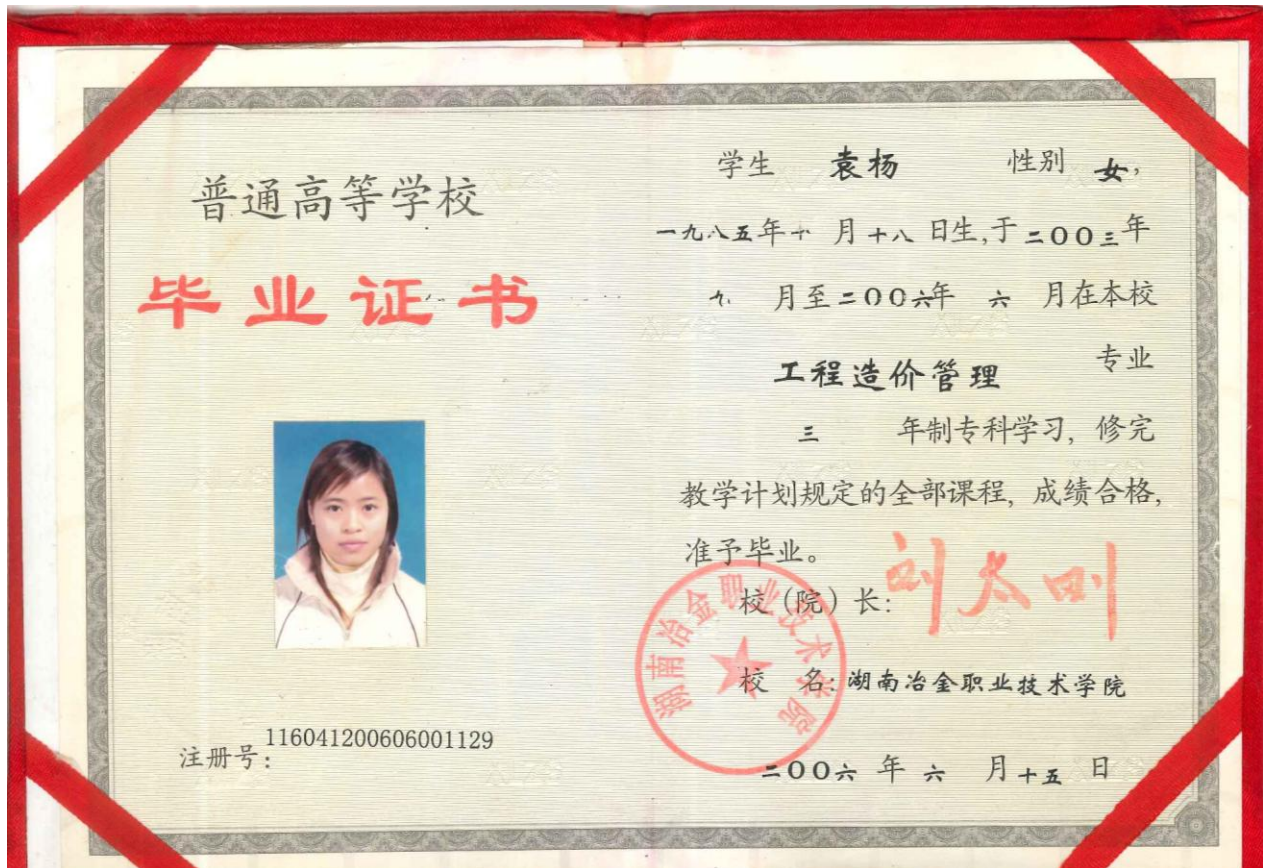 普通高等学校
毕业证书
注册号：116041200606001129
学生 袁杨 性别 女,
一九八五年十 月十八 日生,于二00三年
九 月至二00六年 六 月在本校
工程造价管理 专业
三 年制专科学习, 修完
教学计划规定的全部课程, 成绩合格,
准予毕业。
校（院）长: 刘太刚
校 名: 湖南冶金职业技术学院
二00六 年 六 月十五 日
湖南冶金职业技术学院